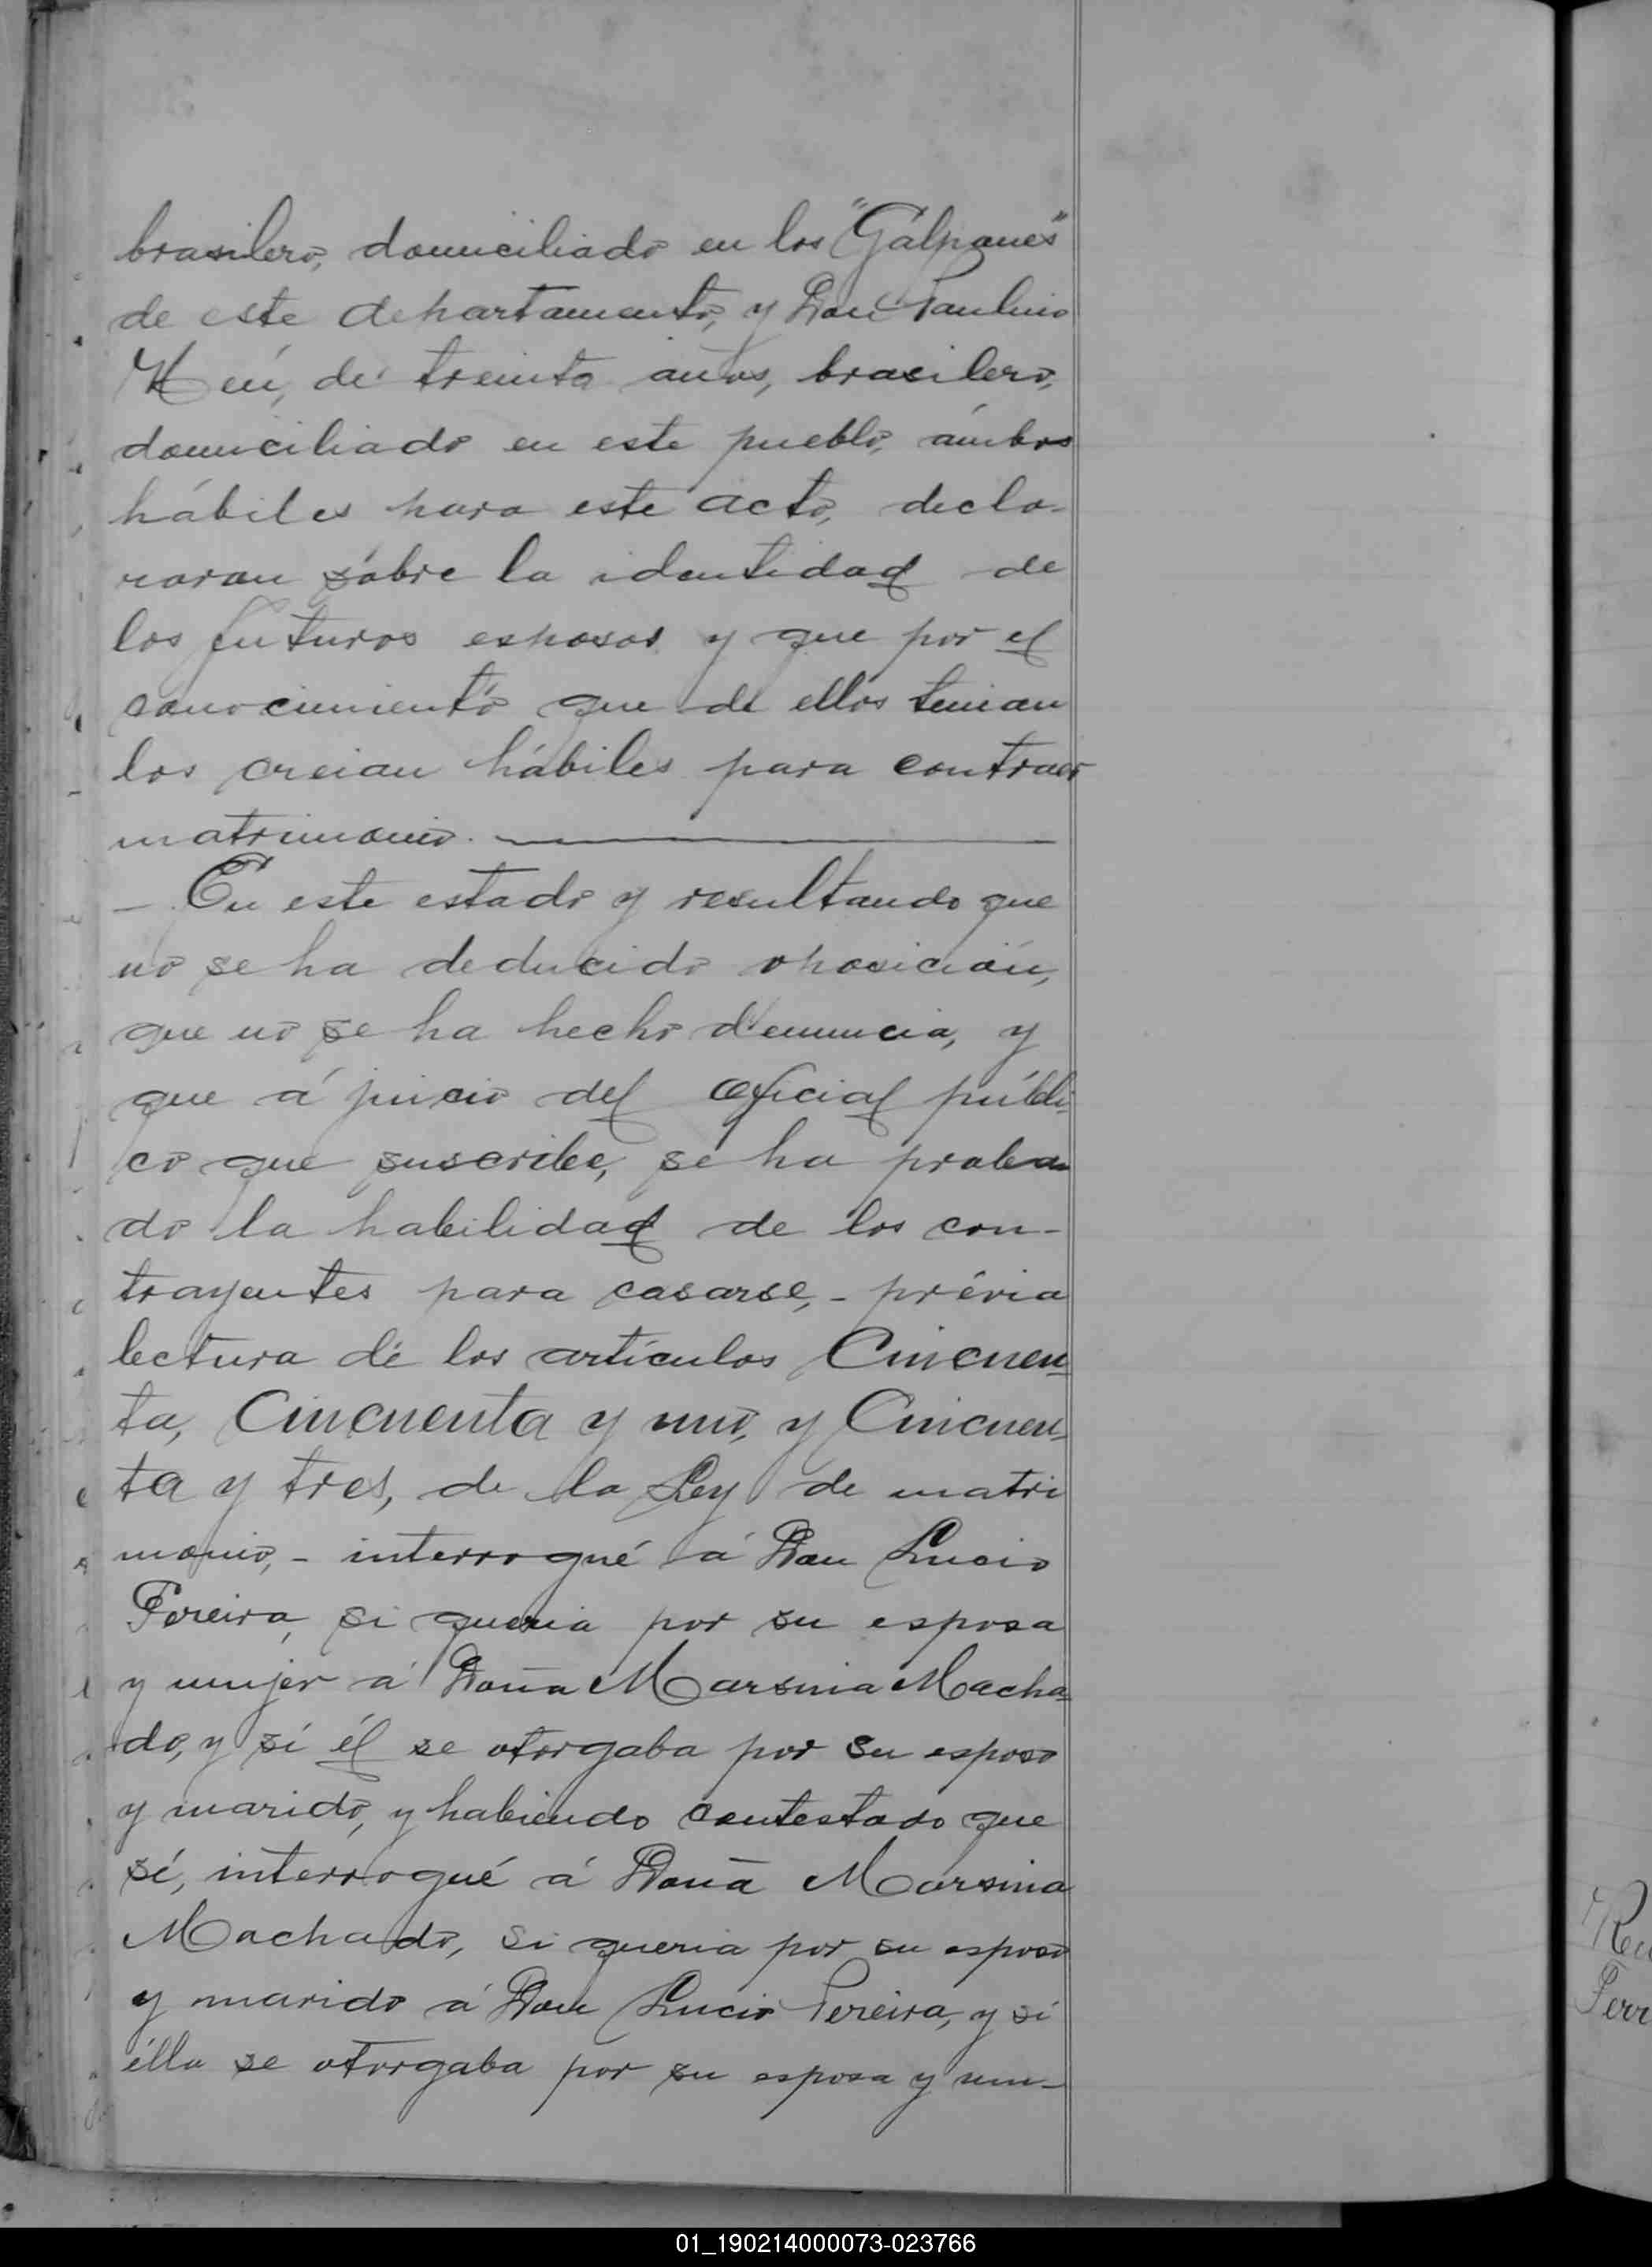 brasilero, domiciliado en los "Galpones"
de este departamento, y Don Paulino
de treinta años, brasilero,
domiciliado en este pueblo, ámbos
hábiles para este acto, decla-
raran sóbre la identidad de
los futuros esposos y que por el
conocimiento que de ellos tenian
los creian hábiles para contraer
matrimonio.
- En este estado y resultando que
no se ha deducido oposición,
que no se ha hecho denuncia, y
que á juicio del oficial públi-
co que suscribe, se ha proba-
do la habilidad de los con-
trayentes para casarse, - prévia
lectura de los artículos Cincuen-
ta, Cincuenta y uno, y Cincuen-
ta y tres, de la Ley de matri
monio, - interrogué á Don Lucio
Pereira, si queria por su esposa
y mujer á Doña Marsina Macha
do, y sí él se otorgaba por su esposo
y marido, y habiendo contestado que
sí, interrogué á Doña Marsina
Machado, si queria por su esposo
y marido á Don Lucio Pereira, y sí
élla se otorgaba por su esposa y mu-
01_190214000073-023766